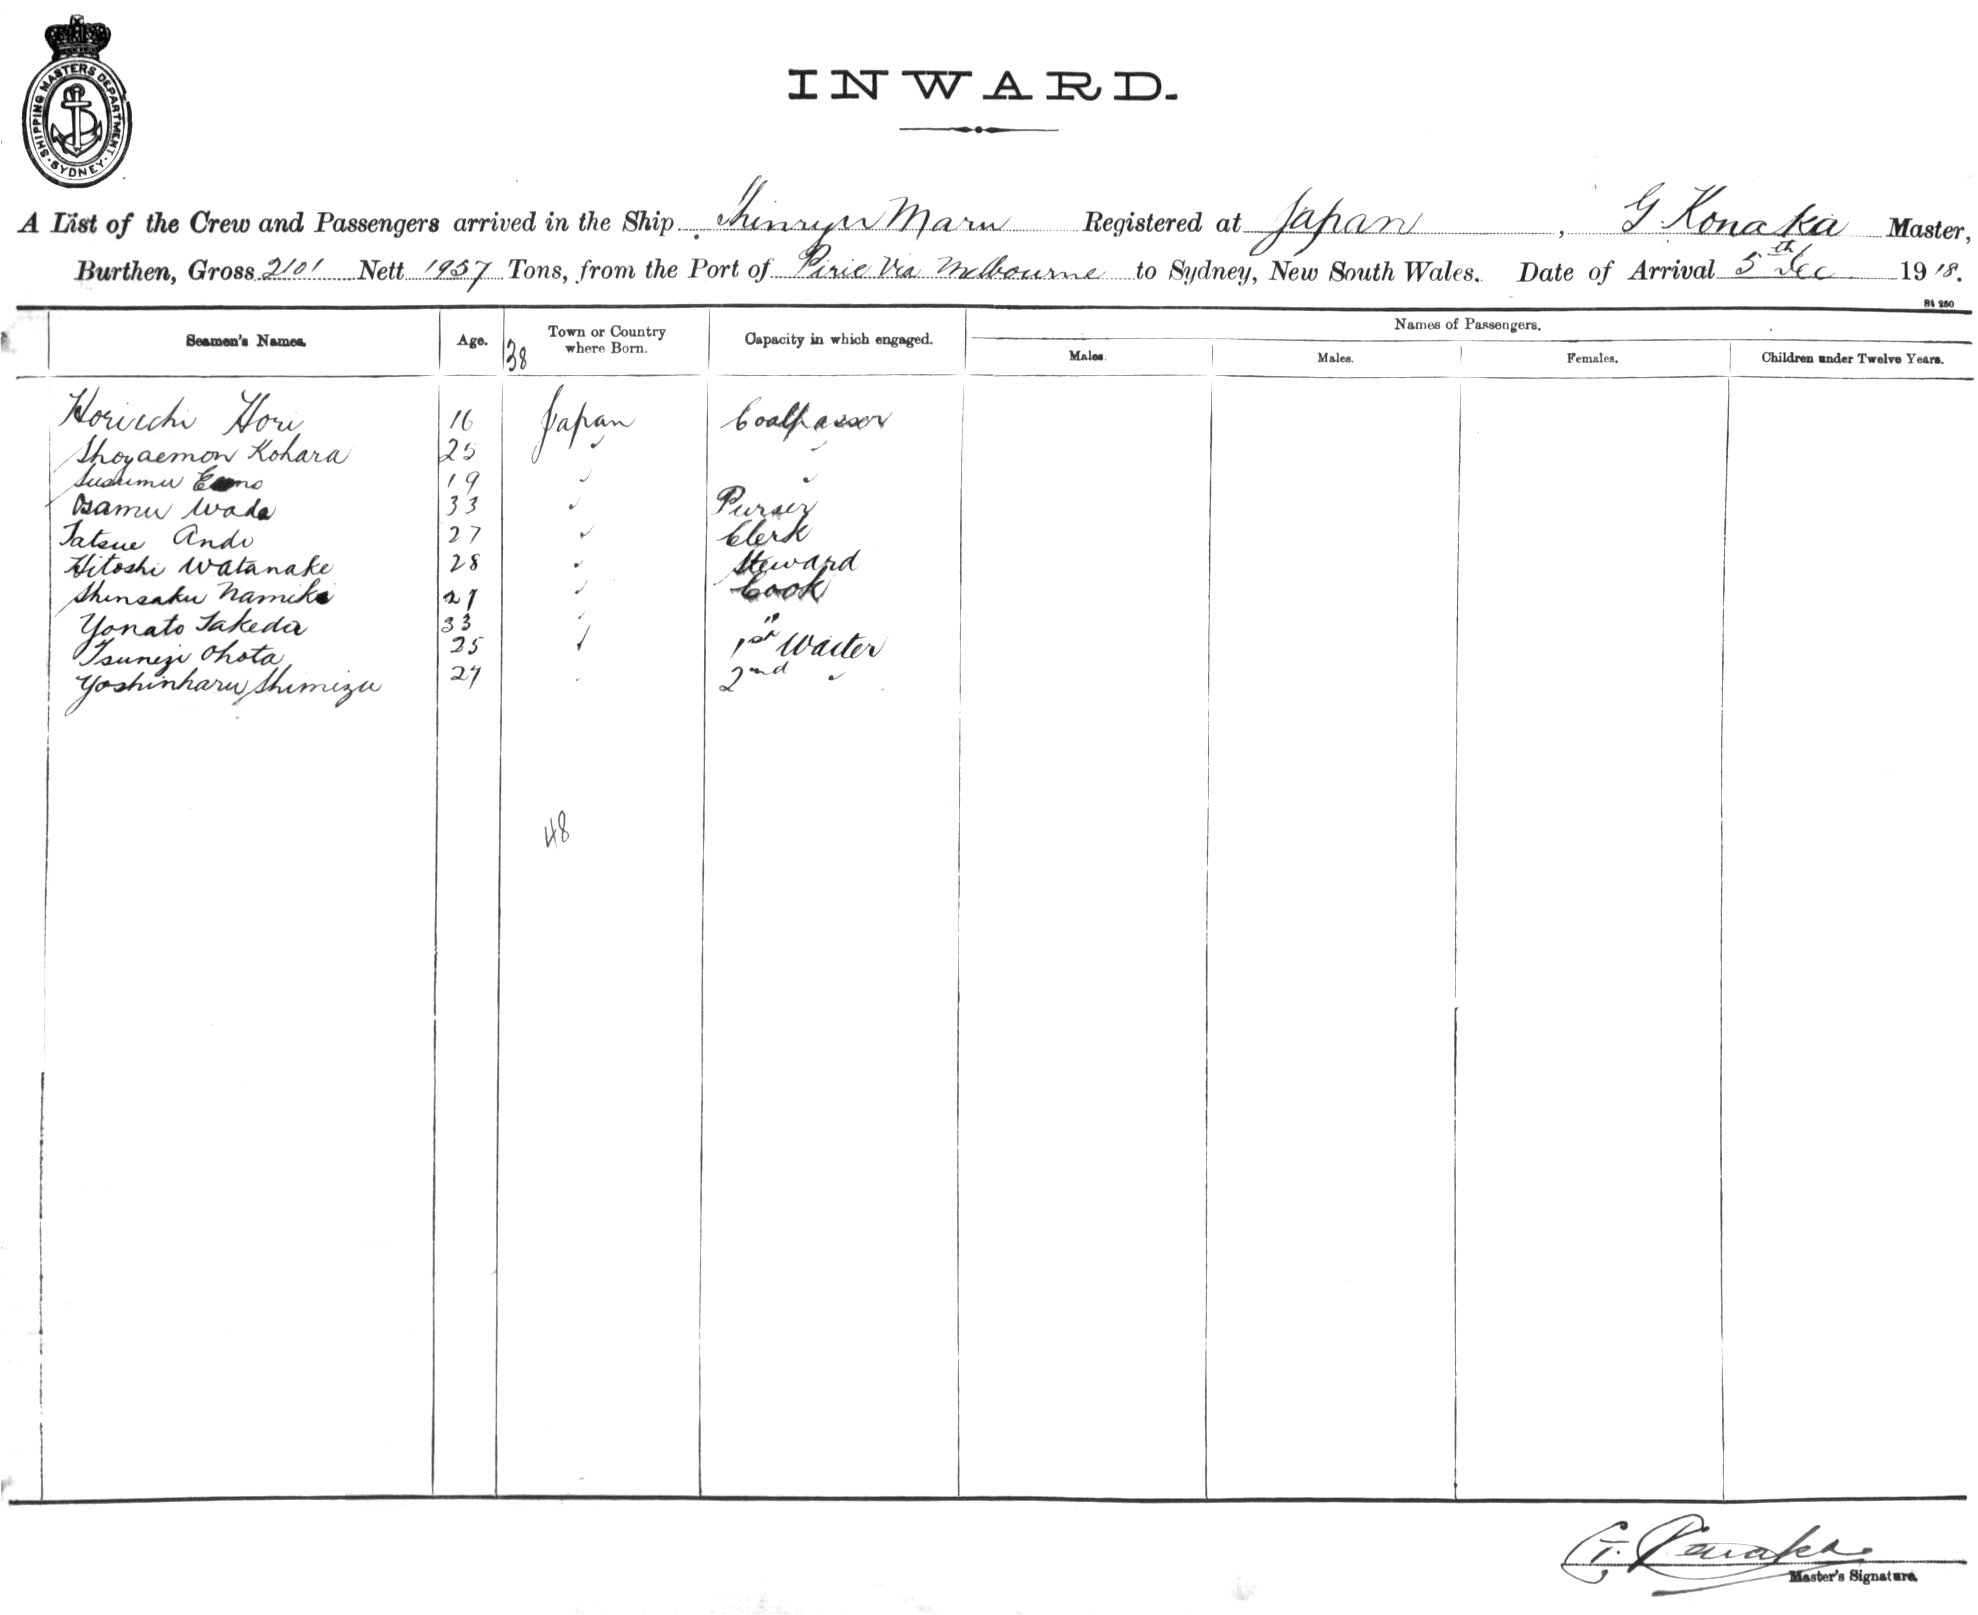 SHIPPING MASTERS DEPARTMENT · SYDNEY ·
INWARD.
A List of the Crew and Passengers arrived in the Ship Shinryu Maru Registered at Japan, G. Konaka Master,
Burthen, Gross 2101 Nett 1957 Tons, from the Port of Pirie Via Melbourne to Sydney, New South Wales. Date of Arrival 5th Dec 1918.
St 250
Seamen's Names. Age. 38 Town or Country where Born. Capacity in which engaged. Names of Passengers.
Males. Males. Females. Children under Twelve Years.
Horiichi Hori 16 Japan Coalpasser
Shoyaemon Kohara 25 " "
Susumu 19 " "
Osamu Wada 33 " Purser
Tatsue Ando 27 " Clerk
Hitoshi Watanake 28 " Steward
Shinsaku Namiki 27 " Cook
Yonato Takeda 33 " "
Tsunezi Ohota 25 " 1st Waiter
Yoshinharu Shimizu 27 " 2nd "
48
G. Konaka
Master's Signature.